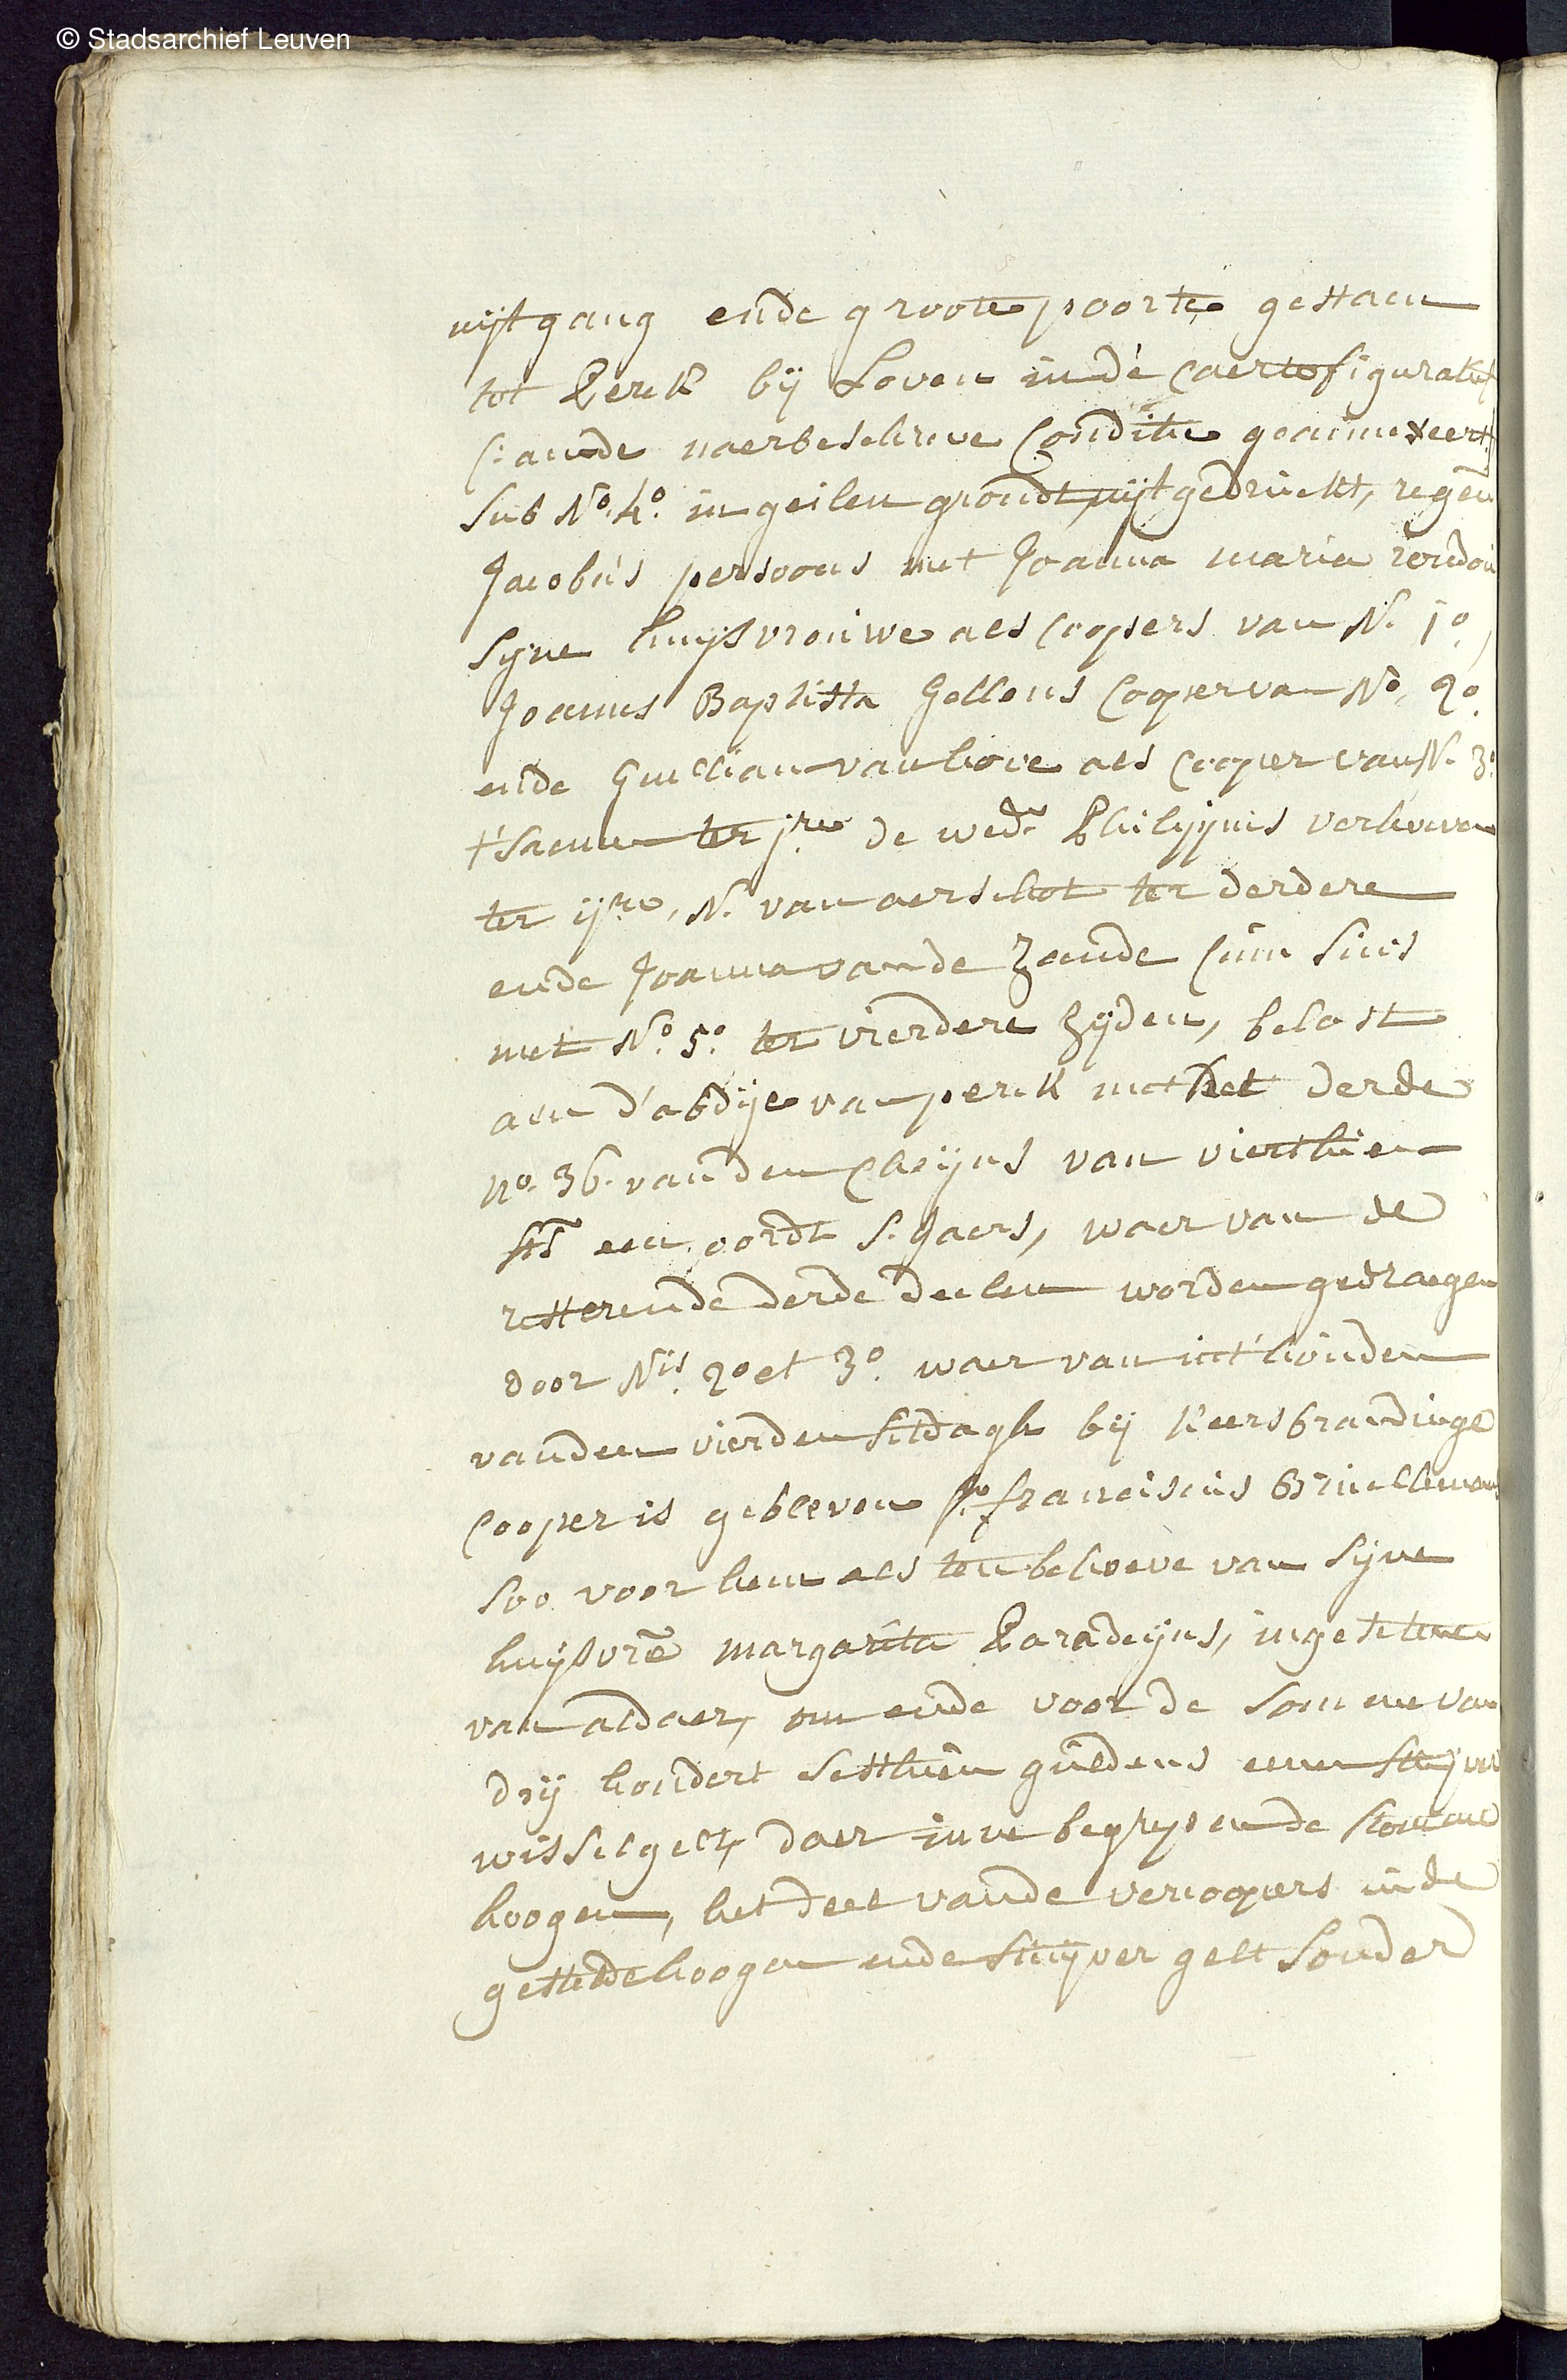 © Stadsarchief Leuven
uijtgang ende groote poorte gestaen
tot Perck bij Loven in dè Caerte figuratief
(: aende naerbeschreve Conditie geannexeert
sub No. 4o. in geilen grondt uijtgedruckt, regen
Jacobus persoons met Joanna maria
syne huijsvrouwe als Coopers van N. 1o,
Joannes Baptista Gellens Cooper van No. 2o.
ende Guilliam van hove als Cooper van N. 3o
t'saemen ter jre de wede. Philippus verhoeven
ter ijre, N. van aerschot ter derdere
ende Joanna vande Zande Cum suis
met No. 5o. ter vierdere Zijden, belast
aen d'abdije van perck met het derde
no. 36. vanden Cheijns van vierthien
sts een oordt s. Jaers, waer van de
resterende derde deelen worden gedraegen
door Nis. 2o et 3o. waer van int' houden
vanden vierden sitdagh bij keersbrandinge
Cooper is gebleven Sr. franciscus Bruellemans
soo voor hem als ten behoeve van syne
huijsvre margarita Paradeijns, ingesetene
van aldaer, om ende voor de somme van
drij hondert sesthien guldens eenen stuijver
wisselgelt, daer inne begrepen de
hoogen, het deel vande vercoopers inde
gestelde hoogen ende stuijver gelt sonder